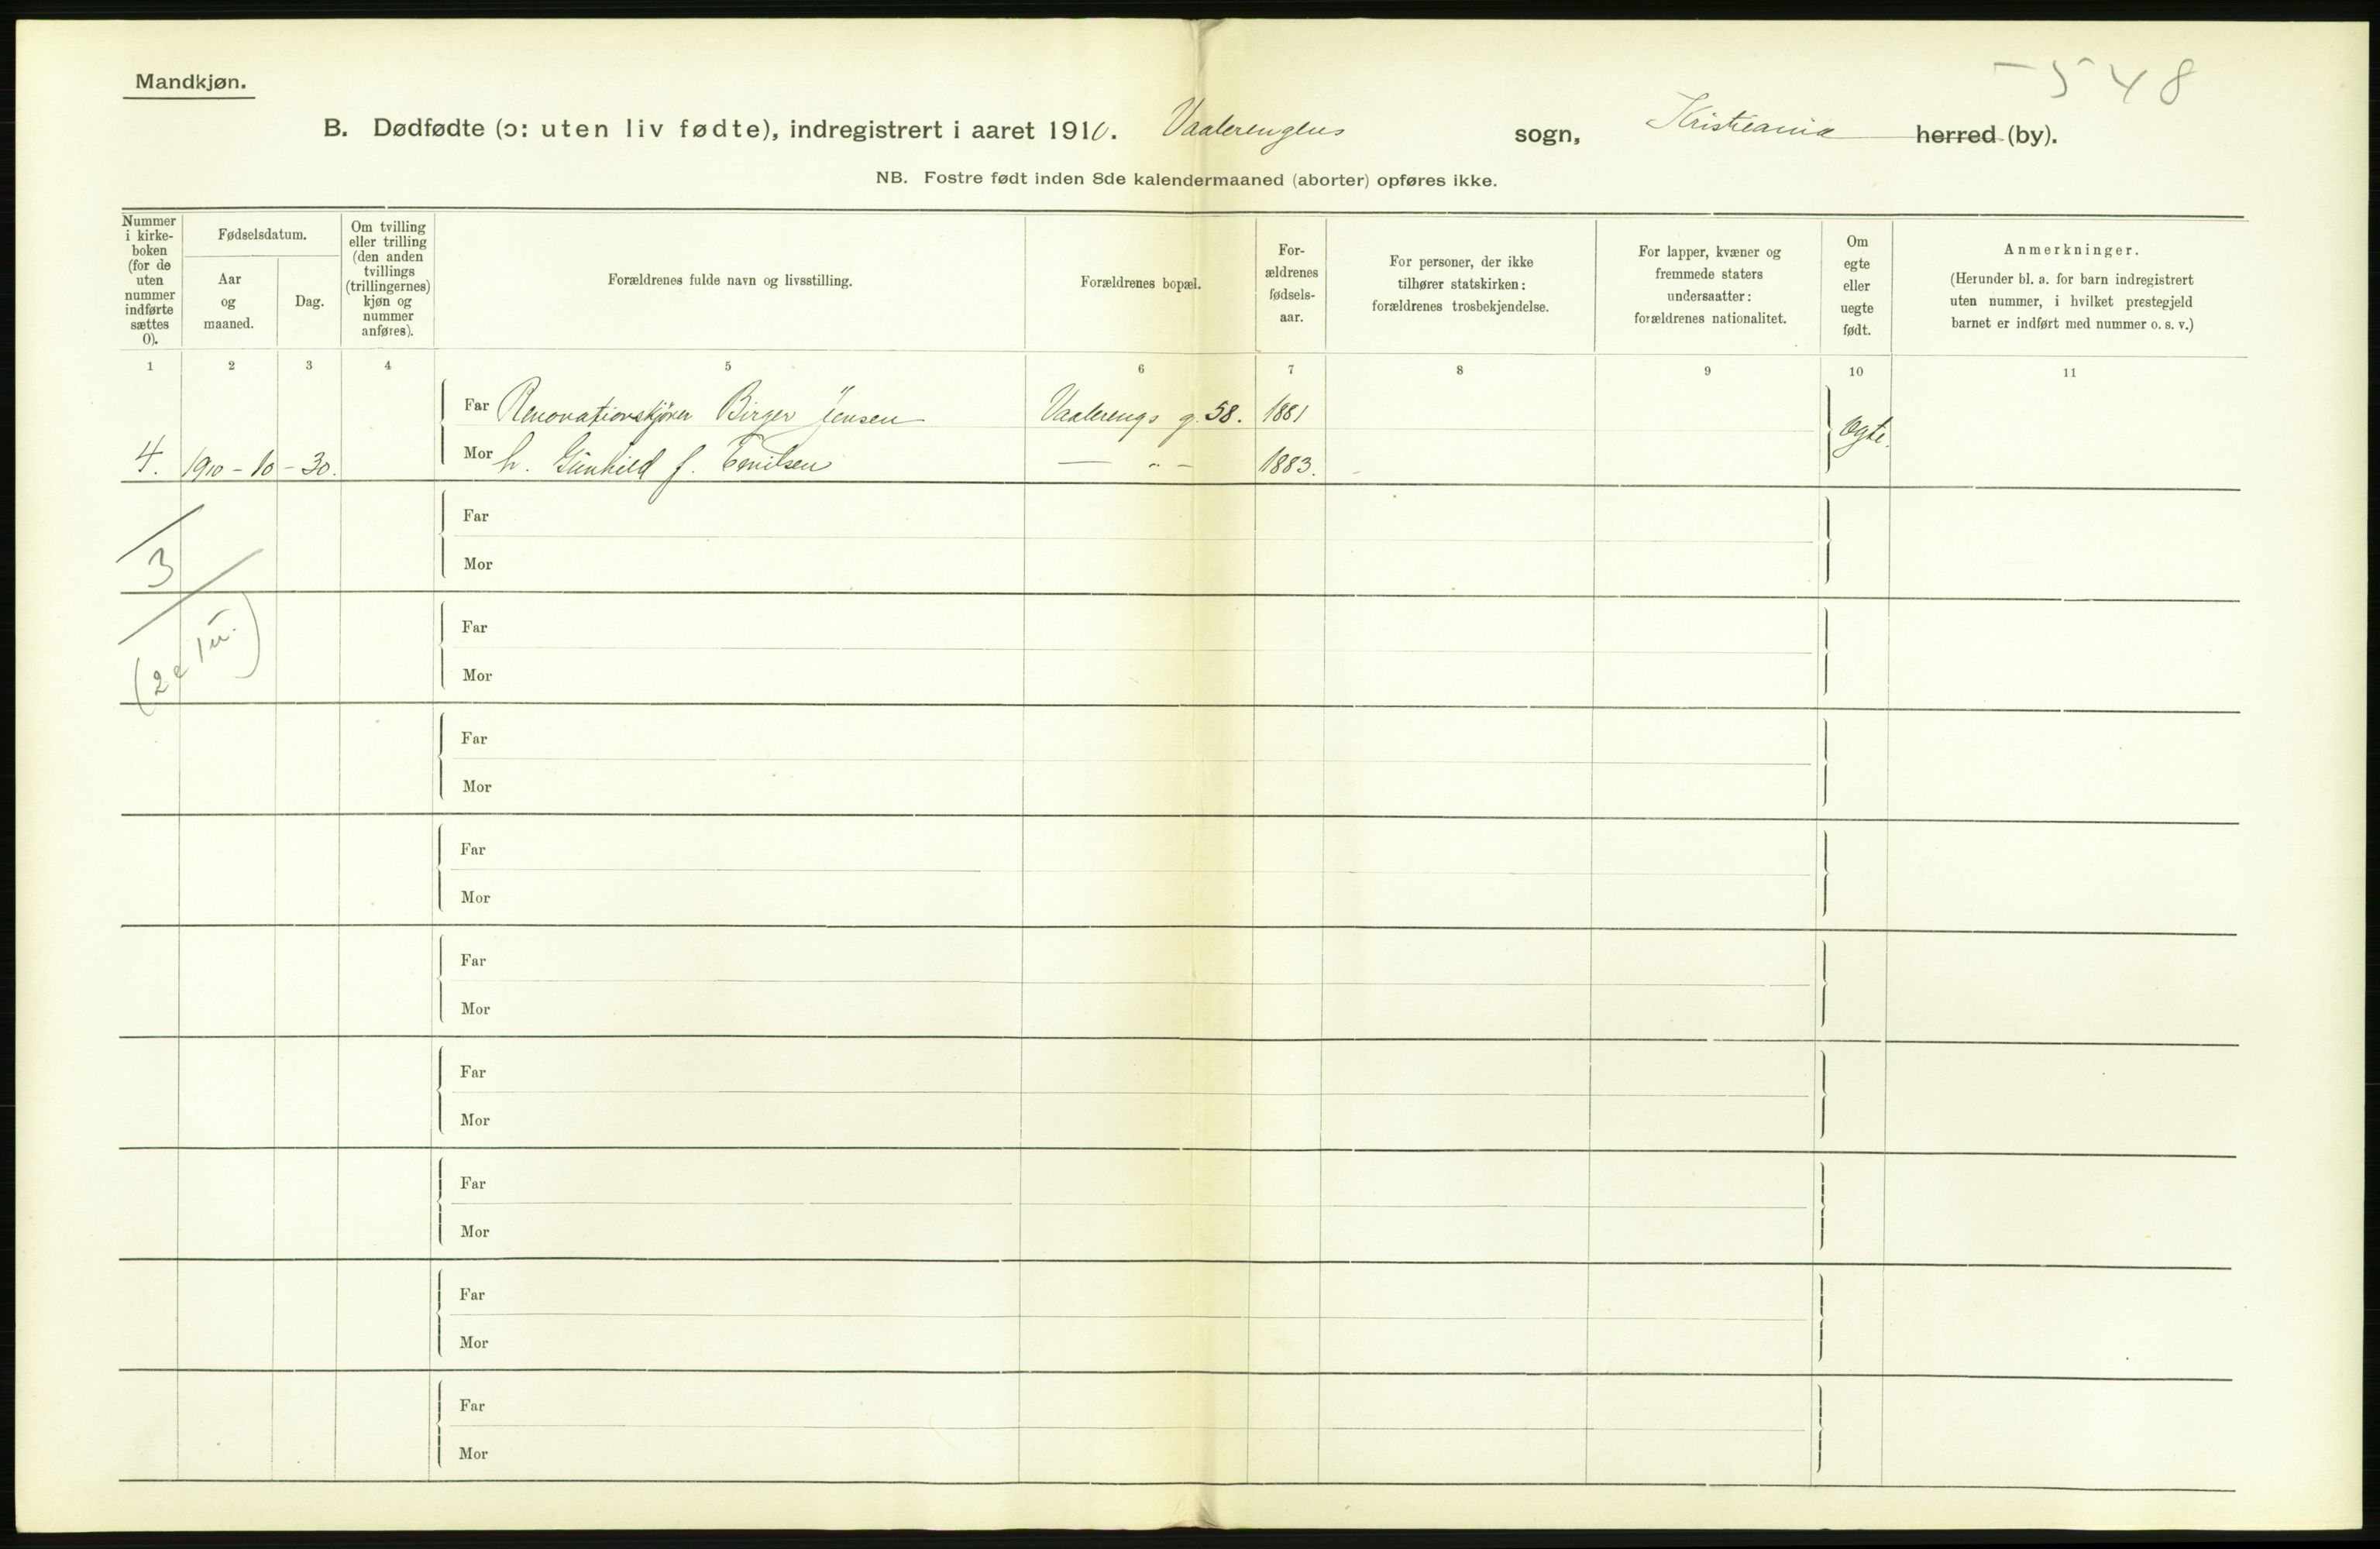 Mandkjøn.
-548
B. Dødfødte (ɔ: uten liv fødte), indregistrert i aaret 1910. Vaalerengens sogn, Kristiania herred (by).
NB. Fostre født inden 8de kalendermaaned (aborter) opføres ikke.
Nummer i kirke-boken (for de uten nummer indførte sættes 0).
Fødselsdatum.
Aar og maaned.
Dag.
Om tvilling eller trilling (den anden tvillings (trillingernes) kjøn og nummer anføres).
Forældrenes fulde navn og livsstilling.
Forældrenes bopæl.
For-ældrenes fødsels-aar.
For personer, der ikke tilhører statskirken: forældrenes trosbekjendelse.
For lapper, kvæner og fremmede staters undersaatter: forældrenes nationalitet.
Om egte eller uegte født.
Anmerkninger.
(Herunder bl. a. for barn indregistrert uten nummer, i hvilket prestegjeld barnet er indført med nummer o. s. v.)
1 2 3 4 5 6 7 8 9 10 11
Far Renovationskjører Birger Jensen Vaalerengs g. 58. 1881
Egte.
4. 1910 - 10 - 30. Mor h. Gunhild f. Emilsen — „ - 1883.
Far
3
Mor
Far
(2e 1u.)
Mor
Far
Mor
Far
Mor
Far
Mor
Far
Mor
Far
Mor
Far
Mor
Far
Mor